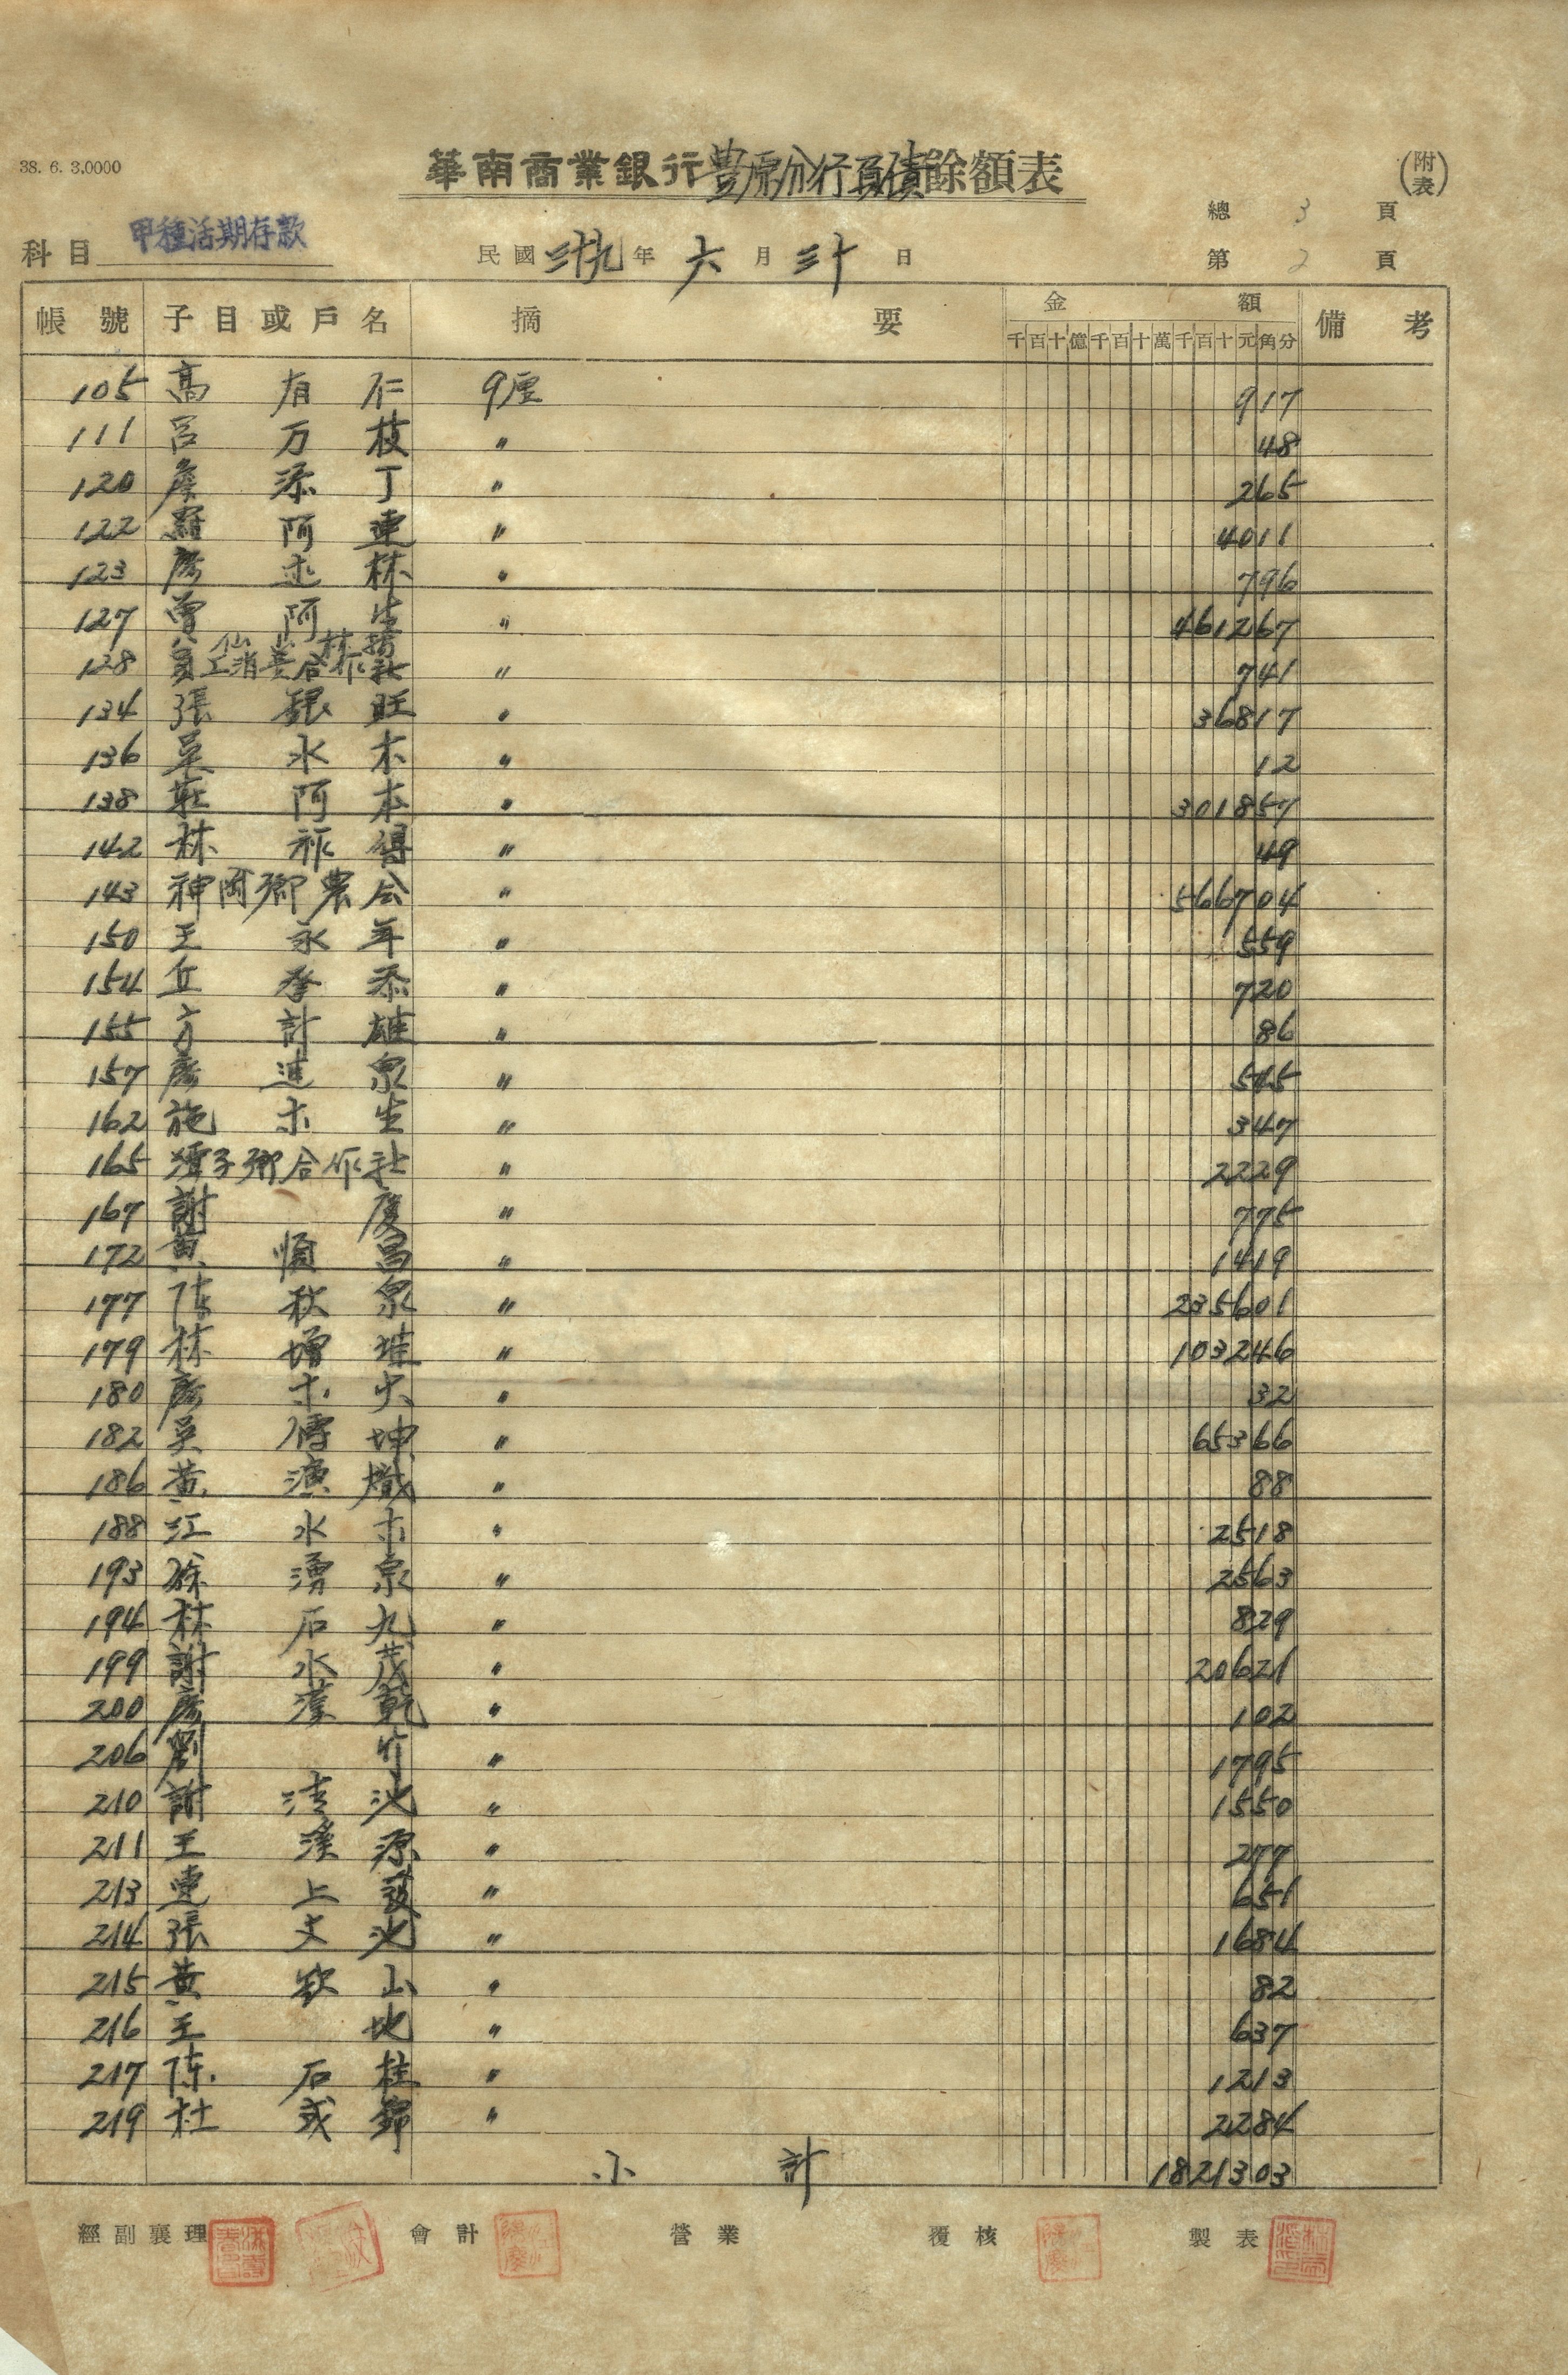 38. 6. 3.0000
華南商業銀行豊原分行負債餘額表
(附表)
總 3 頁
科目 甲種活期存款
民國 三十九 年 六 月 三十 日
第 2 頁
帳號 子目或戶名 摘要 金額 備考
千百十億千百十萬千百十元角分
105 高有仁 9厘 917
111 呂万枝 〃 48
120 詹添丁 〃 265
122 羅阿連 〃 4011
123 廖林 〃 796
127 曾阿生 〃 461267
128 員工消費合作社 〃 741
134 張銀旺 〃 36817
136 吳水木 〃 12
138 莊阿本 〃 301857
142 林得 〃 49
143 神岡鄉農会 〃 566704
150 王永年 〃 559
154 丘添 〃 720
155 方計雄 〃 86
157 廖連泉 〃 545
162 施木生 〃 347
165 潭子鄉合作社 〃 2229
167 謝慶 〃 775
172 黃順昌 〃 1419
177 陳秋泉 〃 235601
179 林增 〃 103246
180 廖木火 〃 32
182 吳傳坤 〃 65366
186 黃演熾 〃 88
188 江水木 〃 2518
193 徐湧泉 〃 2563
194 林石九 〃 829
199 謝水茂 〃 20621
200 廖漢乾 〃 102
206 劉竹 〃 1795
210 謝清池 〃 1550
211 王溪源 〃 277
213 連上發 〃 651
214 張文池 〃 1684
215 黃欽山 〃 82
216 王地 〃 637
217 陳石柱 〃 1213
219 杜或錦 〃 2284
小計 1821303
經副襄理 會計 營業 覆核 製表